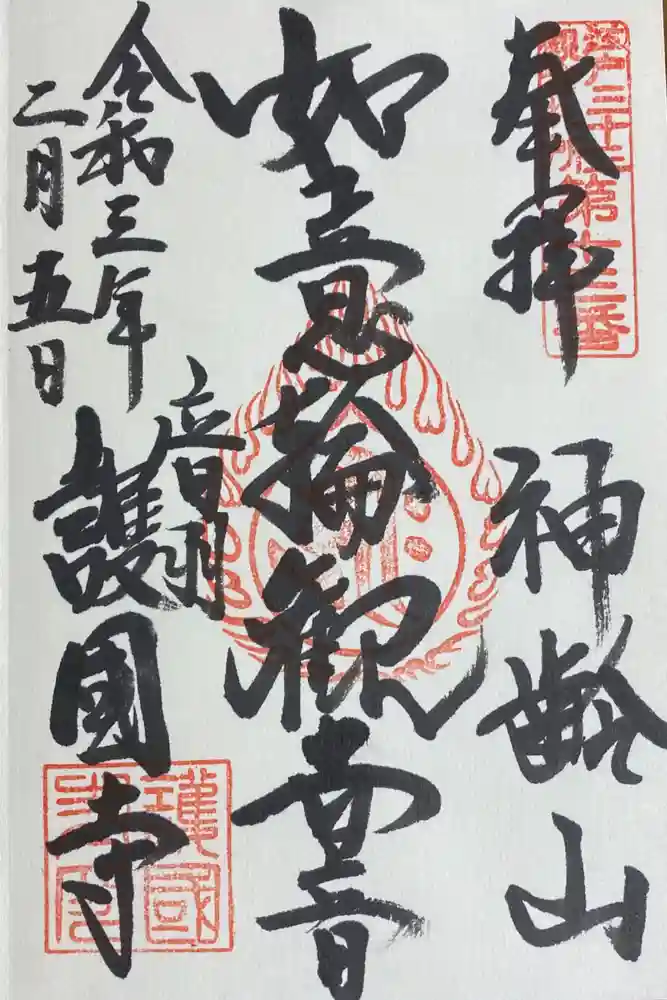 江戸三十三
第十三番
奉拝
神齢山
如意輪観世音
音羽
護國寺
令和三年
二月五日
護國